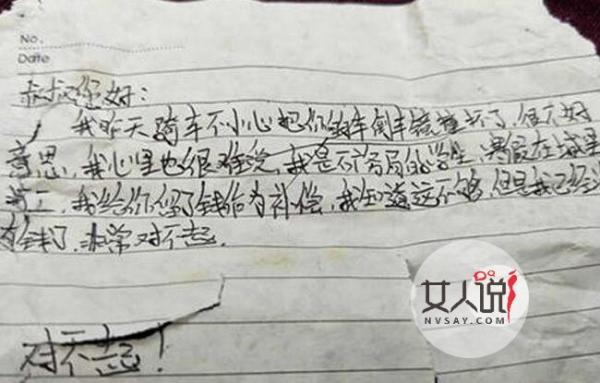 No.
Date
叔叔您好：
我昨天骑车不小心把你的车倒车镜撞坏了，很不好
意思，我心里也很难受，我是的学生，寒假在城里
打工，我给你了钱作为补偿，我知道这不够，但是我已经
有钱了，非常对不起。
对不起！
女人说
NVSAY.COM